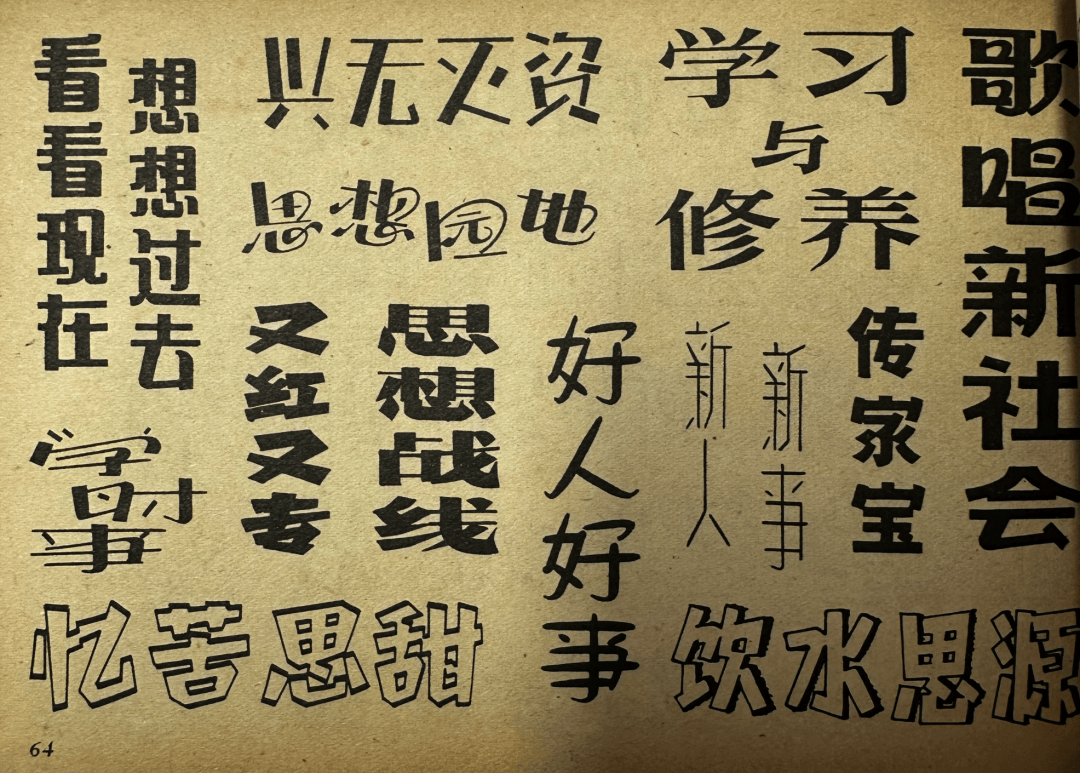 看看现在
想想过去
兴无灭资
思想园地
学习
与
修养
歌唱新社会
又红又专
思想战线
好人好事
新人
新事
传家宝
学时事
忆苦思甜
饮水思源
64